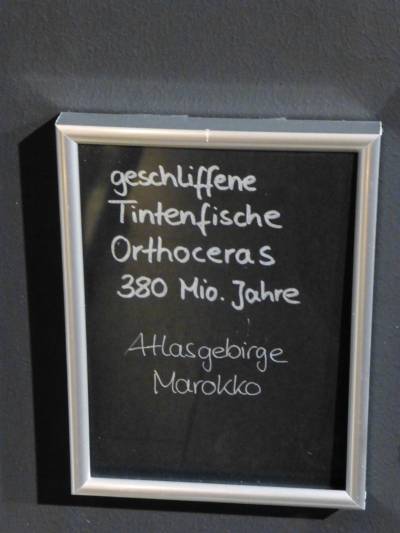 geschliffene
Tintenfische
Orthoceras
380 Mio. Jahre
Atlasgebirge
Marokko